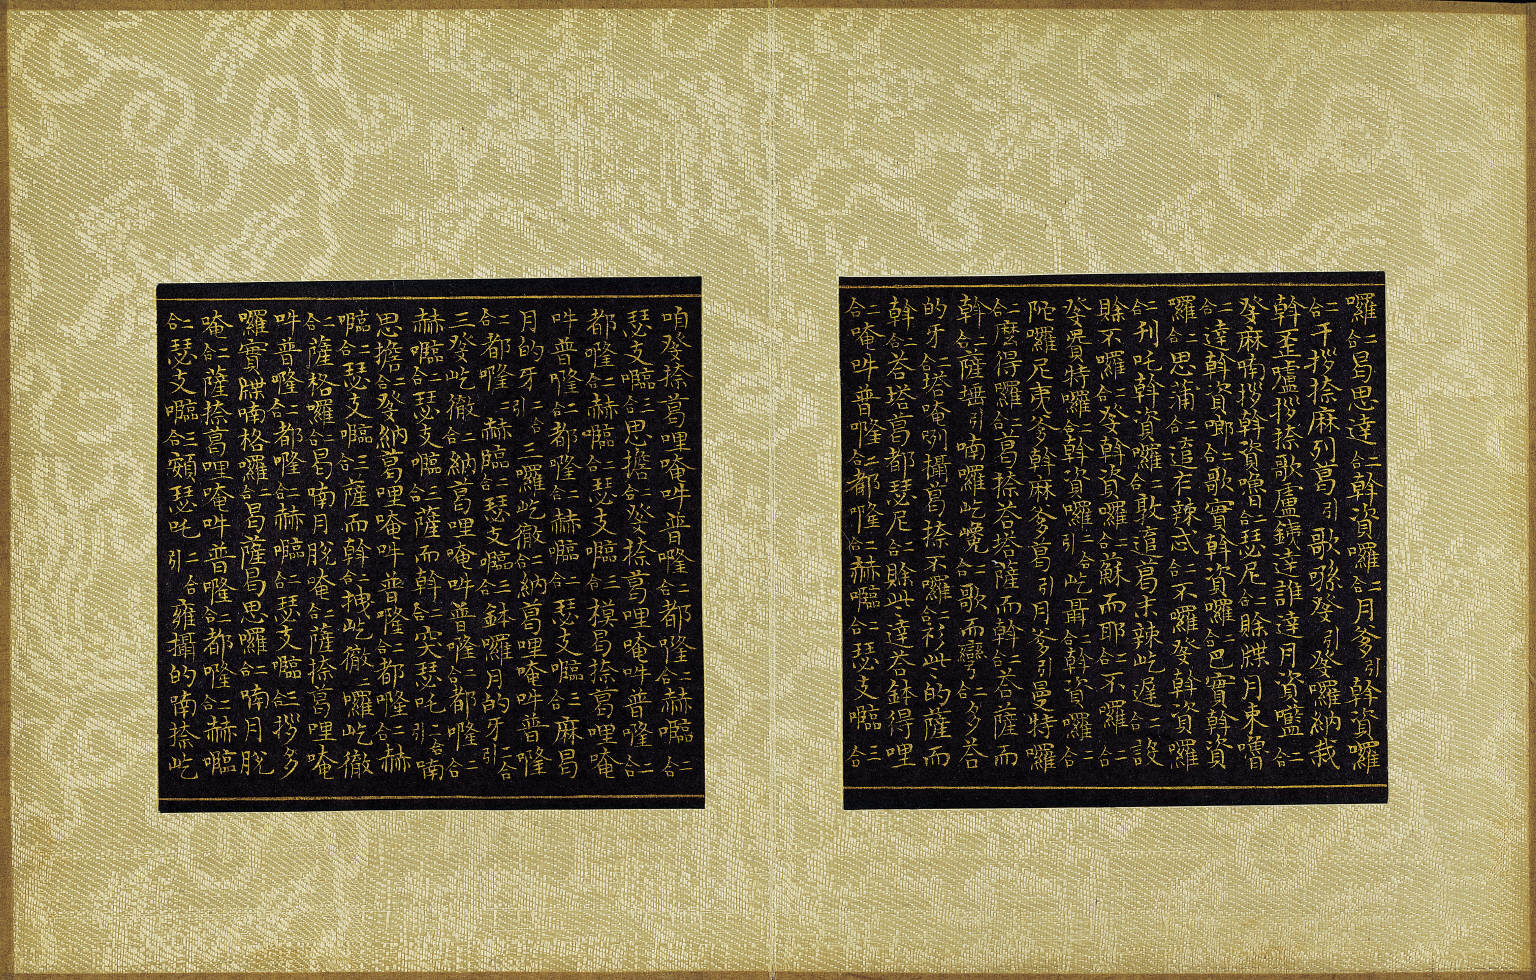 囉二合曷思達二合斡資囉二合月爹引斡資囉
二合干拶捺麻列葛引歌縣癹引癹囉納哉
斡歪噓拶捺歌廬銕達誰達月資嚂二合
癹麻喃拶斡資嚕二合瑟尼二合賒牒月東囎
二合達斡資唧二合歌實斡資囉二合巴實斡資
囉二合思蒲二合迨冇辣忒二合不囉癹斡資囉
二合刋吒斡資囉二合敢迨葛末辣屹遲二合設
賒不囉二合癹斡資囉二合蘇而耶二合不囉二合
癹特囉二合斡資囉二合引屹聶二合斡資囉二合
陀囉尼夷爹斡麻爹葛引月爹引曼特囉
二合麽得囉二合葛捺荅塔薩而斡二合荅薩而
斡二合薩埵引喃囉屹二合歌而彎二合多荅
的牙二合塔唵呬攝葛捺不囉二合衫些的薩而
斡二合荅塔葛都瑟尼二合賒些達荅鉢得哩
二合唵吽普嚨二合都嚨二合赫嚂二合瑟支嚂三合
咱癹捺葛哩唵吽普嚨二合都嚨二合赫嚂二合
瑟支嚂三合思擔二合癹捺葛哩唵吽普嚨二合
都嚨二合赫嚂二合瑟支嚂三合模曷捺葛哩唵
吽普嚨二合都嚨二合赫嚂二合瑟支嚂三合麻曷
月的牙引二合三囉屹徹二合納葛哩唵吽普嚨
二合都嚨二合赫嚂二合瑟支嚂三合鉢囉月的牙引二合
三癹屹徹二合納葛哩唵吽普嚨二合都嚨二合
赫嚂二合瑟支嚂三合薩而斡二合突瑟吒引二合喃
思擔二合癹納葛哩唵吽普嚨二合都嚨二合赫
嚂二合瑟支嚂三合薩而斡二合拽屹徹二合囉屹徹
二合薩格囉二合曷喃月脫唵二合薩捺葛哩唵
吽普嚨二合都嚨二合赫嚂二合瑟支嚂三合拶多
囉實牒喃格囉二合曷薩曷思囉二合喃月脫
唵二合薩捺葛哩唵吽普嚨二合都嚨二合赫嚂
二合瑟支嚂三合頞瑟吒引二合雍攝的喃捺屹